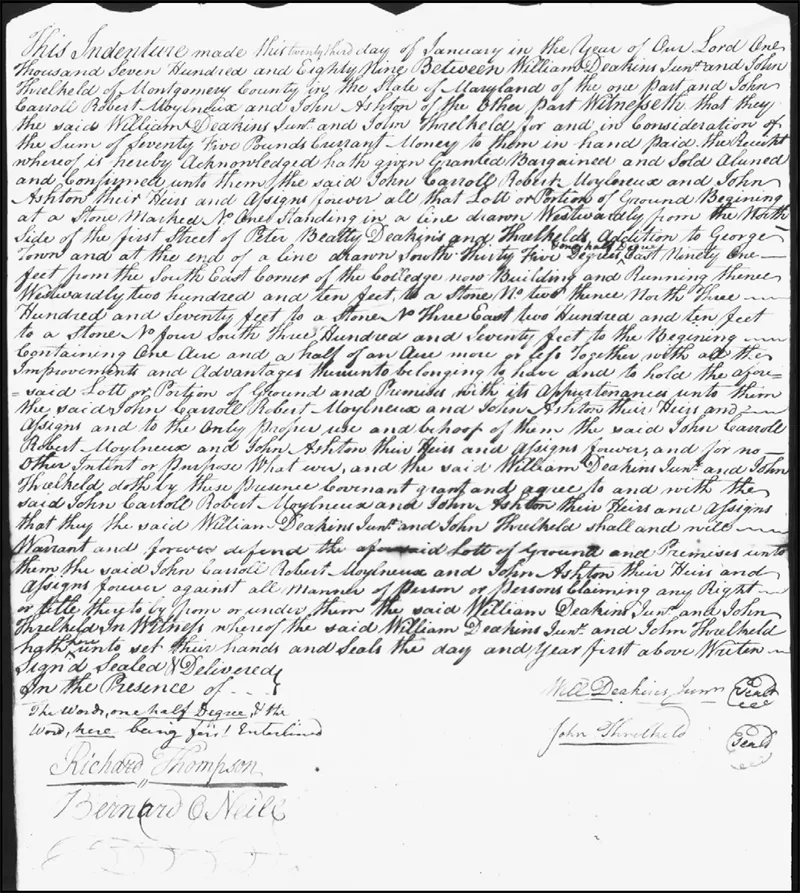 This Indenture made this twenty third day of January in the Year of Our Lord One
Thousand Seven Hundred and Eighty Nine Between William Deakins Junr. and John
Threlkeld of Montgomery County in the State of Maryland of the one Part and John
Carroll Robert Moylneux and John Ashton of the Other part Witnesseth that they
the said William Deakins Junr. and John Threlkeld for and in Consideration of
the Sum of Seventy Five Pounds Currant Money to them in hand paid the Receipt
whereof is hereby Acknowledged hath given Granted Bargained and Sold Aliened
and Confirmed unto them the said John Carroll Robert Moylneux and John
Ashton their Heirs and Assigns forever all that Lott or Portion of Ground Begining
at a Stone Marked No. One Standing in a line drawn Westwardly from the North
Side of the first Street of Peter Beatty Deakins and Threlkelds Addition to George
Town and at the end of a line drawn South Thirty Five Degrees one half Degree East Ninety One
feet from the South East Corner of the Colledge now Building and Running thence
Westwardly two hundred and ten feet, to a Stone No. two thence North Three
Hundred and Seventy feet to a Stone No Three East two Hundred and ten feet
to a Stone No four South Three Hundred and Seventy feet to the Begining
Containing One Acre and a half of an Acre more or less Together with all the
Improvements and Advantages thereunto belonging to have and to hold the afore=
=said Lott or Portion of Ground and Premises with its Appurtenances unto them
the said John Carroll Robert Moylneux and John Ashton their Heirs and
Assigns and to the Only Proper use and behoof of them the said John Carroll
Robert Moylneux and John Ashton their Heirs and Assigns forever, and for no
Other Intent or purpose What ever, and the said William Deakins Junr. and John
Threlkeld doth by these Presence Covenant grant and agree to and with the
said John Carroll Robert Moylneux and John Ashton their Heirs and Assigns
that they the said William Deakins Junr. and John Threlkeld shall and will
Warrant and forever defend the aforesaid Lott of Ground and Premises unto
them the said John Carroll Robert Moylneux and John Ashton their Heirs and
Assigns forever against all Manner of Person or Persons Claiming any Right
or title thereto by from or under them the said William Deakins Junr. and John
Threlkeld In Witness whereof the said William Deakins Junr. and John Threlkeld
hath here unto set their hands and Seals the day and Year first above Writen
Sign'd Sealed & Delivered
In the Presence of
Will Deakins Junr Seal
The Words, one half Degree, & the
Word, here being first Enterlined
John Threlkeld Seal
Richard Thompson
Bernard O Neill